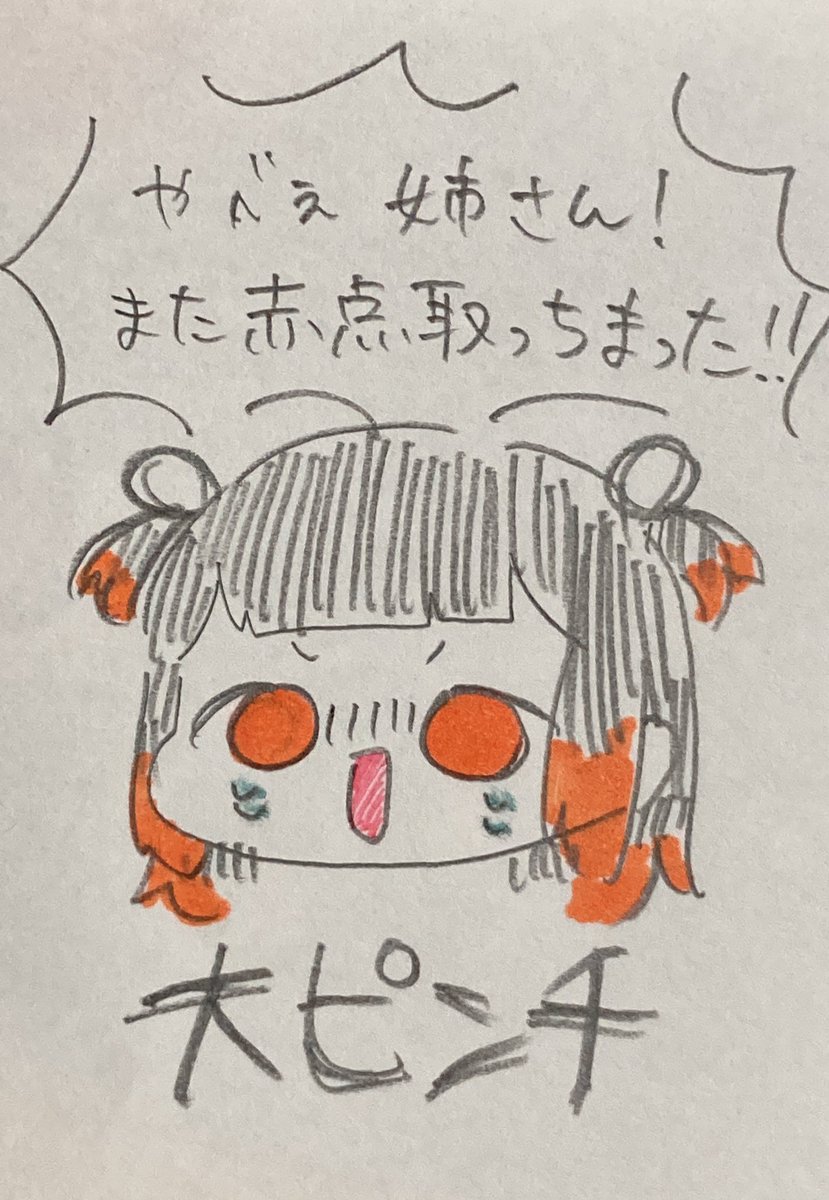 やべぇ 姉さん!
また赤点取っちまった!!
大ピンチ